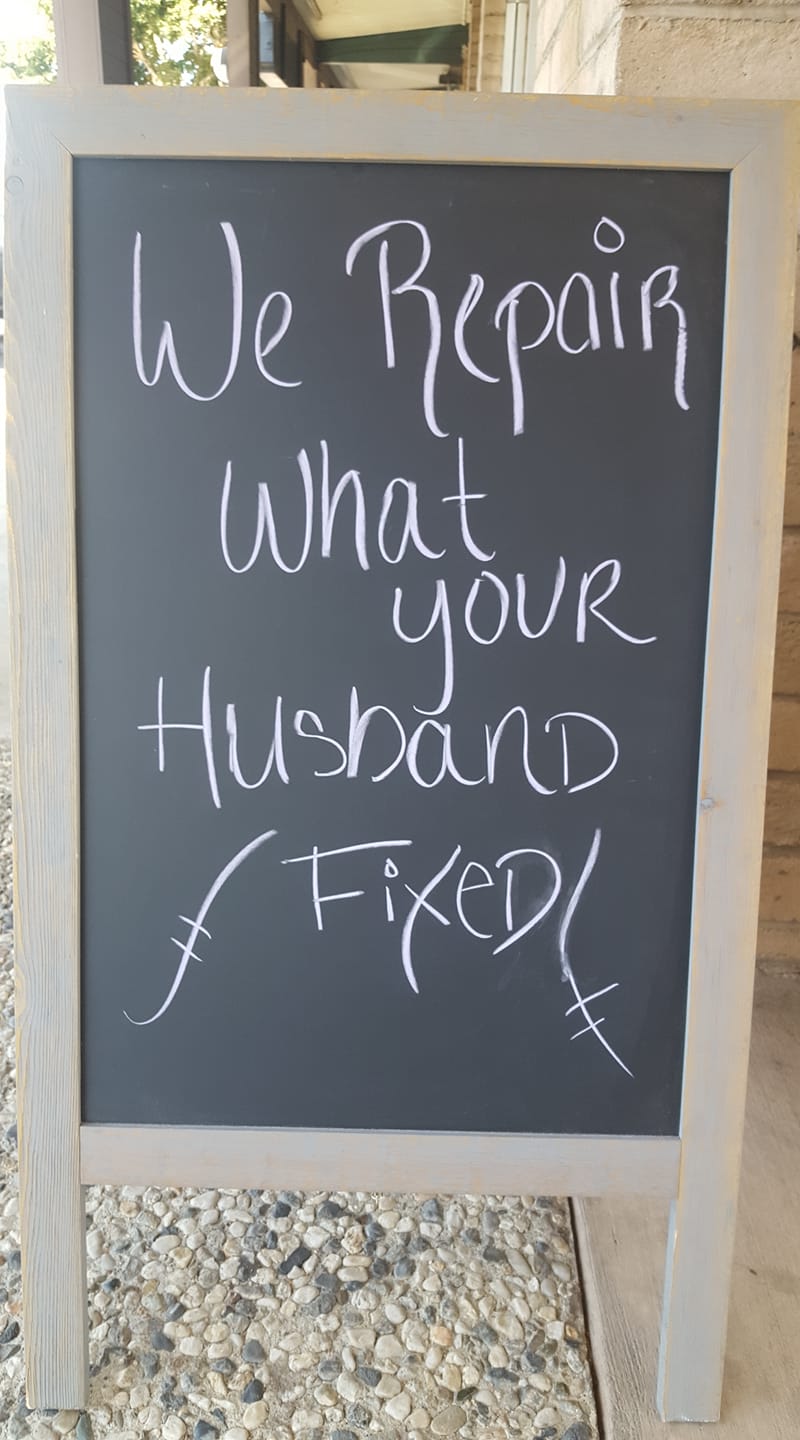 We Repair
What
your
Husband
Fixed